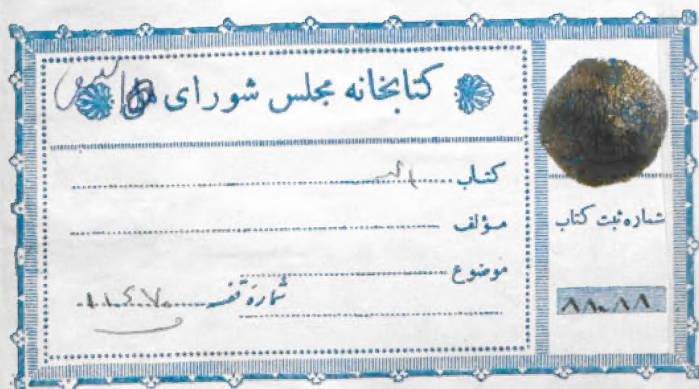 کتابخانه مجلس شورای
کتاب
مؤلف
موضوع
شماره قفسه ۱۱۴۷۰
شماره ثبت کتاب
۸۸۰۸۸